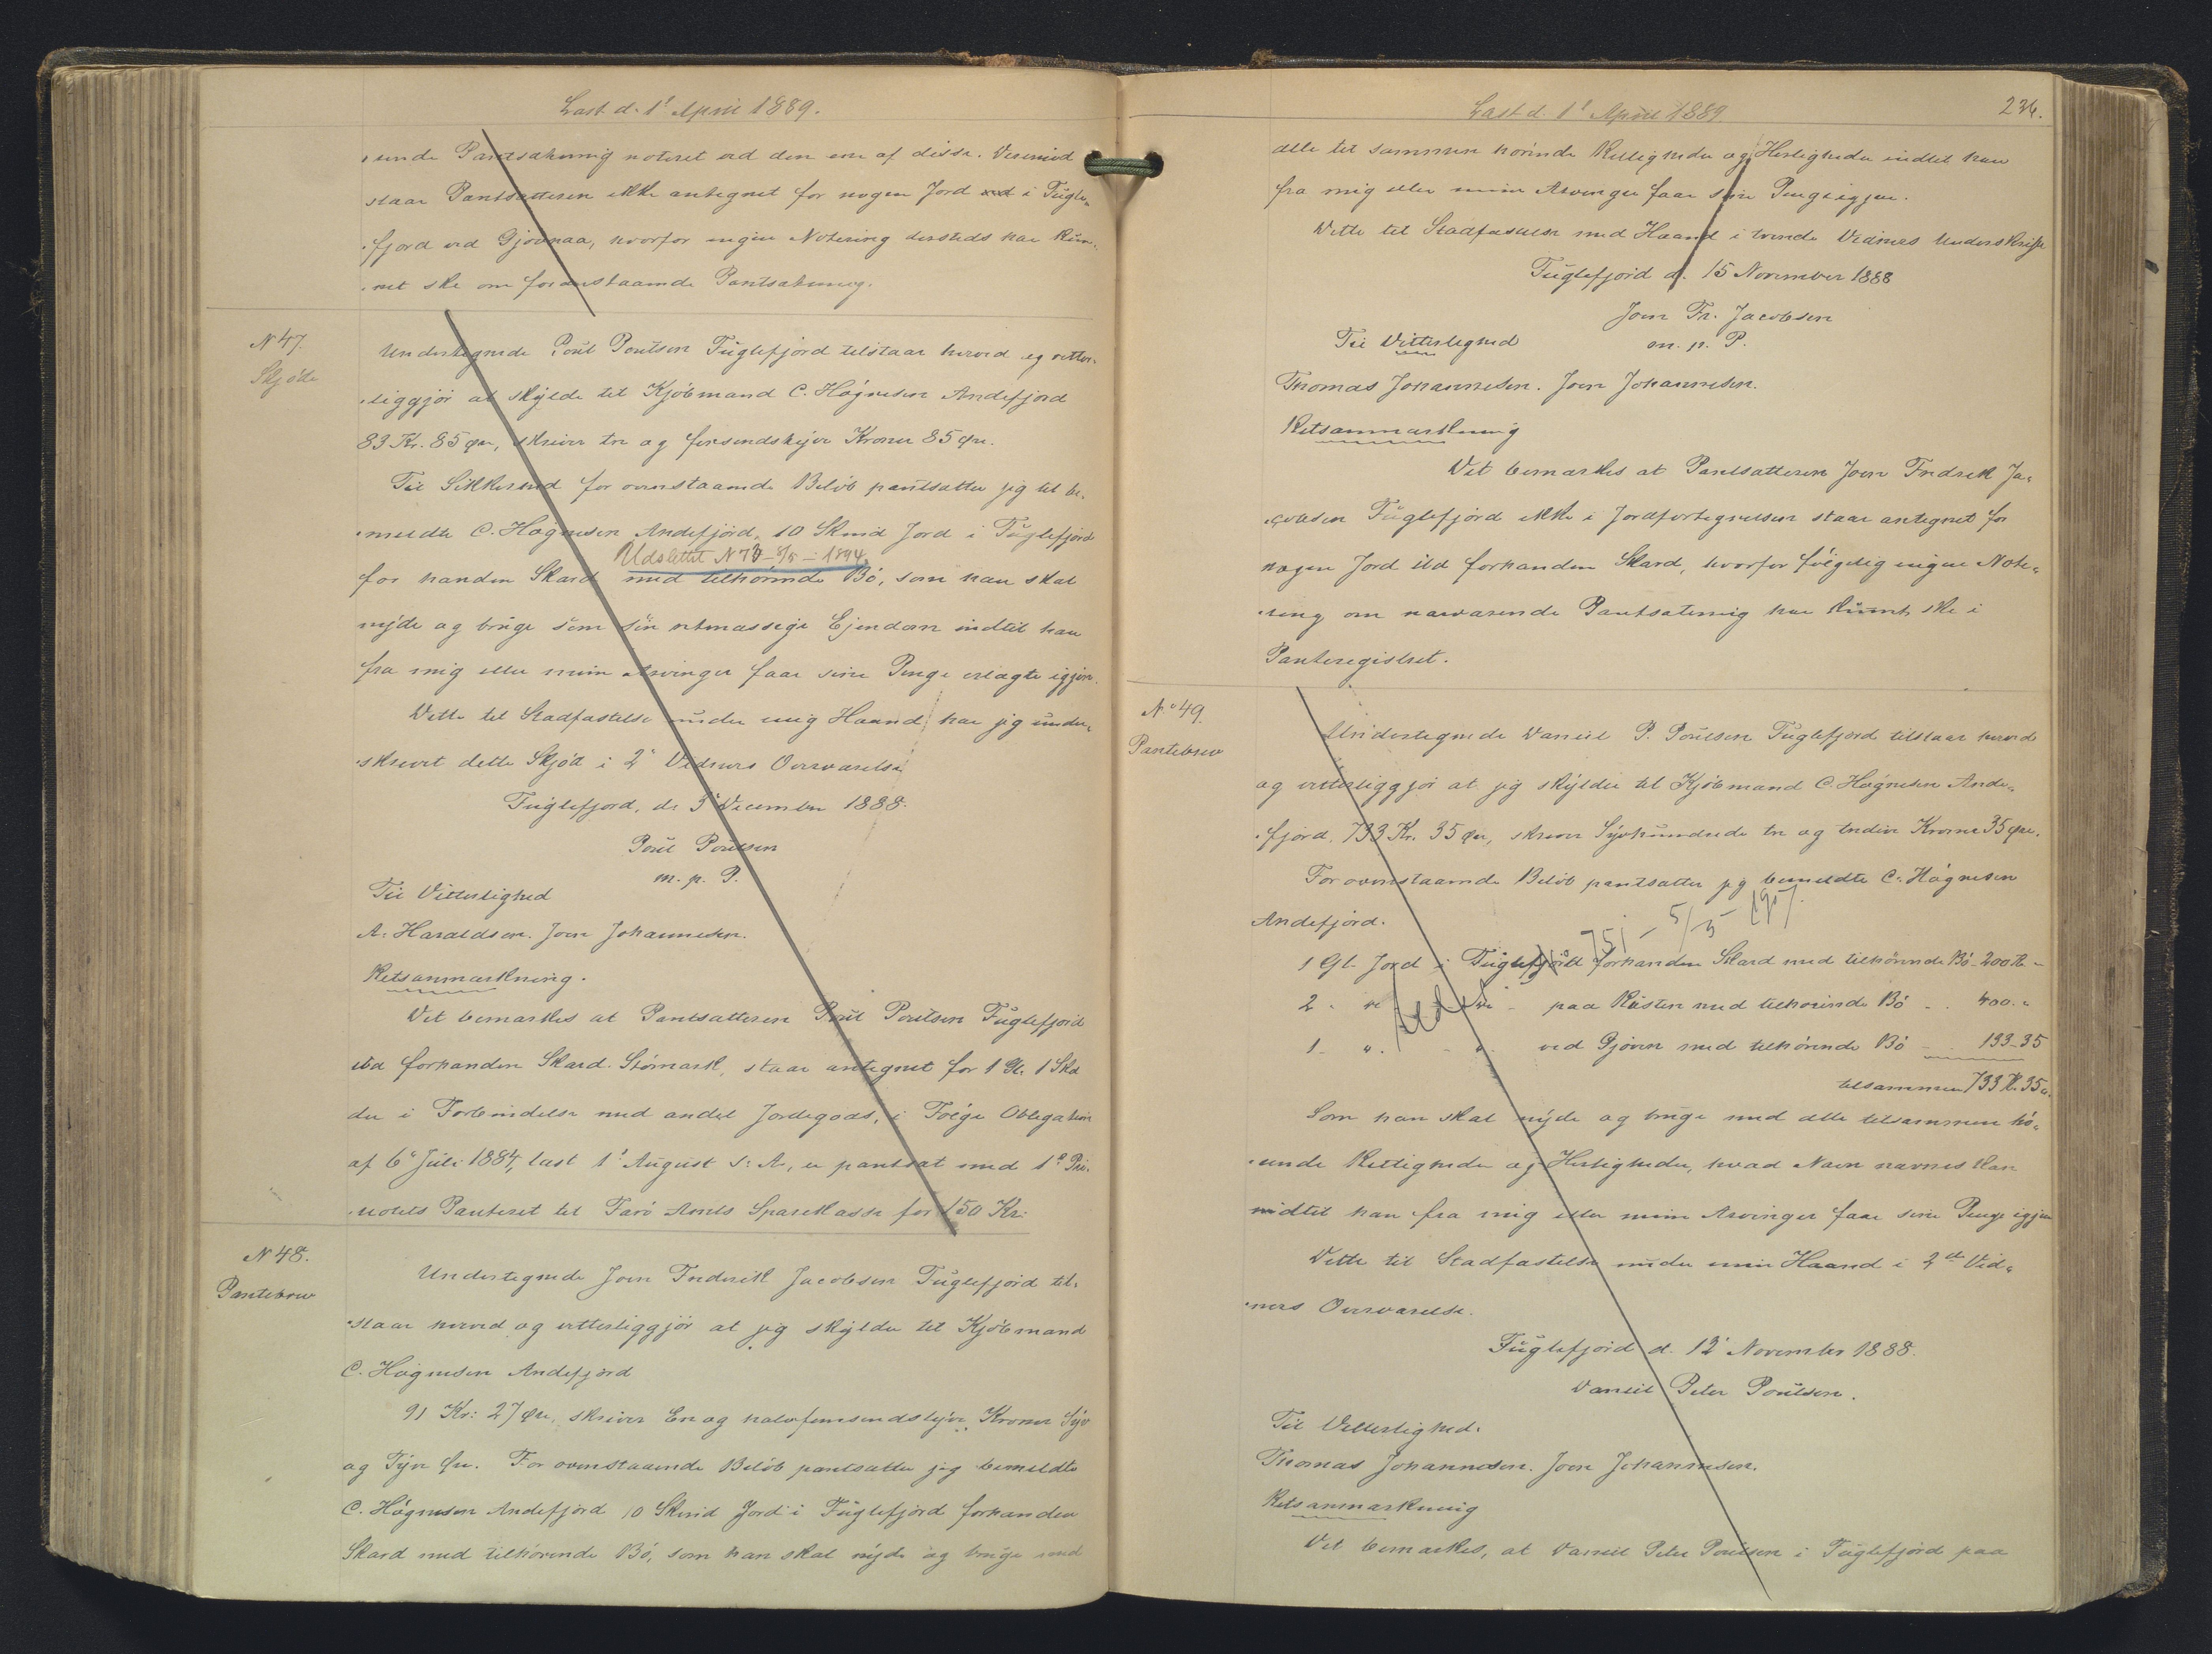 Læst d. 1' April 1889.
, ende Pantsætning noteret ved den ene af disse. Derimod
staar Pantsætteren ikke antegnet for nogen Jord ved i Fugle„
„fjord ved Gjovnaa, hvorfor ingen Notering dersteds har kun„
„net ske om foranstaaende Pantsætning.
N 47.
Skjøde
Undertegnede Poul Poulsen Fuglefjord tilstaar herved og vitter„
„liggjør at skylde til Kjøbmand C. Høgnesen Andefjord
83 Kr. 85 Øre, skriver tre og firesindstyve Kroner 85 Øre.
Til Sikkerhed for ovenstaaende Beløb pantsætter jeg til be„
„meldte C. Høgnesen Andefjord, 10 Skind Jord i Fuglefjord
Udslettet N 73 - 8/5 - 1894.
for handen Skard med tilhørende Bø, som han skal
nyde og bruge som sin retmæssige Ejendom indtil han
fra mig eller mine Arvinger faar sine Penge erlagte igjen.
Dette til Stadfæstelse under mig Haand har jeg under„
„skrevet dette Skjød i 2 Vidners Overværelse
Fuglefjord, d. 3 December 1888.
Poul Poulsen
m. p. P.
Til Vitterlighed
A. Haraldsen. Joen Johannesen.
Retsanmærkning.
Det bemærkes at Pantsætteren Poul Poulsen Fuglefjord
ved forhanden Skard. Stømark, staar antegnet for 1 Gl. 1 Skd
der i Forbindelse med andet Jordegods, i Følge Obligation
af 6' Juli 1884, læst 1' August s. A., er pantsat med 1' Pri„
„oritets Panteret til Færø Amts Sparekasse for 150 Kr.
N 48.
Pantebrev
Undertegnede Joen Frederik Jacobsen Fuglefjord til„
„staar herved og vitterliggjør at jeg skylder til Kjøbmand
C. Høgnesen Andefjord
91 Kr: 27 Øre, skriver En og halvfemsindstyve Kroner Syv
og Tyve Øre. For ovenstaaende Beløb pantsætter jeg bemeldte
C. Høgnesen Andefjord 10 Skind Jord i Fuglefjord forhanden
Skard med tilhørende Bø, som han skal nyde og bruge med
Læst d. 1' April 1889
236.
alle til sammen hørende Rettigheder og Herligheder indtil han
fra mig eller mine Arvinger faar sine Penge igjen.
Dette til Stadfæstelse med Haand i tvende Vidners Underskrift
Fuglefjord d. 15 November 1888
Joen Fr. Jacobsen
m. p. P.
Til Vitterlighed
Thomas Johannesen. Joen Johannesen.
Retsanmærkning
Det bemærkes at Pantsætteren Joen Fredrik Ja„
„cobsen Fuglefjord ikke i Jordfortegnelsen staar antegnet for
nogen Jord ved forhanden Skard, hvorfor følgelig ingen Note„
„ring om nærværende Pantsætning har kunnet ske i
Panteregistret.
N° 49.
Pantebrev
Undertegnede Daniel P. Poulsen Fuglefjord tilstaar herved
og vitterliggjør at jeg skylder til Kjøbmand C. Høgnesen Ande„
„fjord, 733 Kr. 35 Øre, skriver Syvhundrede tre og tredive Kroner 35 Øre.
For ovenstaaende Beløb pantsætter jeg bemeldte C. Høgnesen
Andefjord.
751 - 5/5 1907.
1 Gl. Jord i Fuglefjord forhanden Skard med tilhørende Bø - 200 Kr. "
2 " " " - paa Kusten med tilhørende Bø - . 400. "
1 - " . - " ved Gjoven med tilhørende Bø - . 133-35
tilsammen 733 Kr. 35 "
Som han skal nyde og bruge med alle tilsammen hø„
„rende Rettigheder og Herligheder, hvad Navn nævnes kan
indtil han fra mig eller mine Arvinger faar sine Penge igjen
Dette til Stadfæstelse under min Haand i 2de Vid„
„ners Overværelse.
Fuglefjord d. 12 November 1888.
Daniel Peter Poulsen.
Til Vitterlighed.
Thomas Johannesen. Joen Johannesen.
Retsanmærkning
Det bemærkes, at Daniel Peter Poulsen i Fuglefjord paa